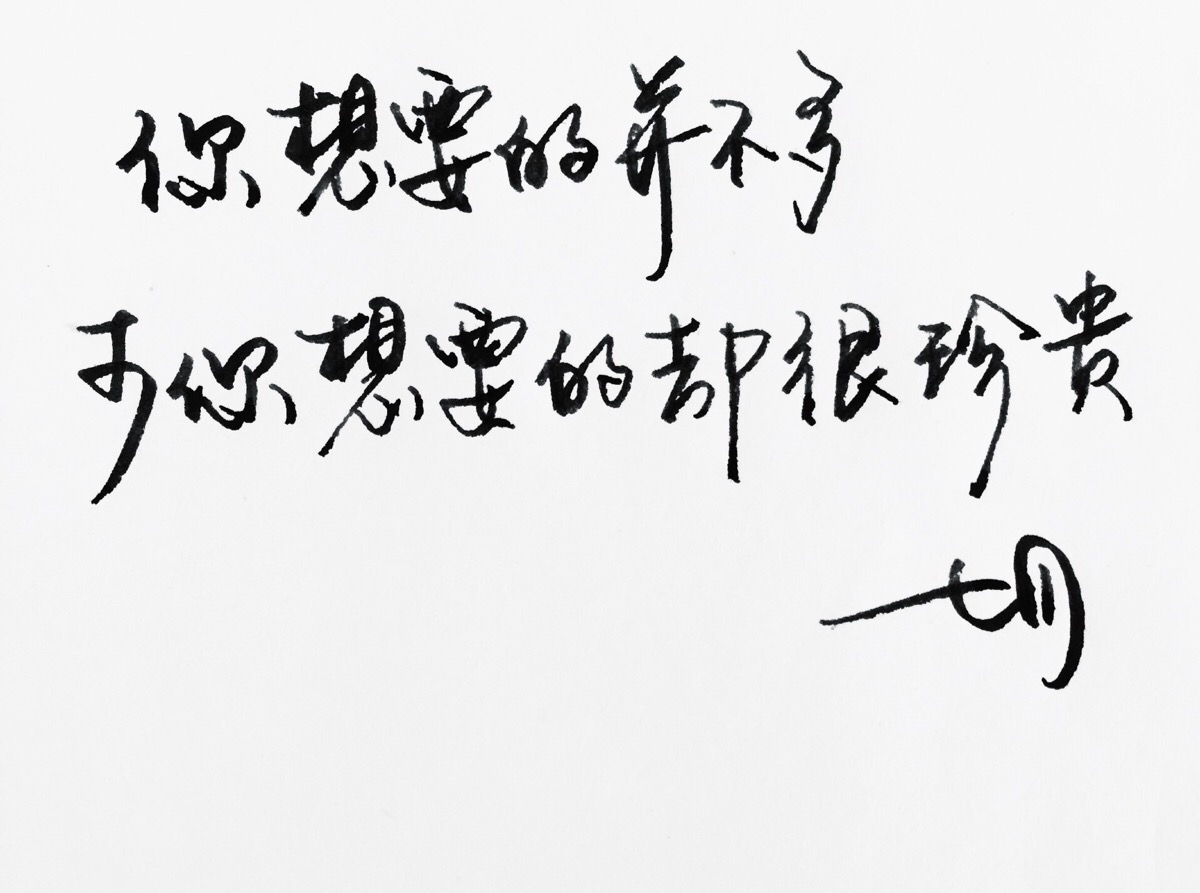 你想要的并不多
可你想要的却很珍贵
七月